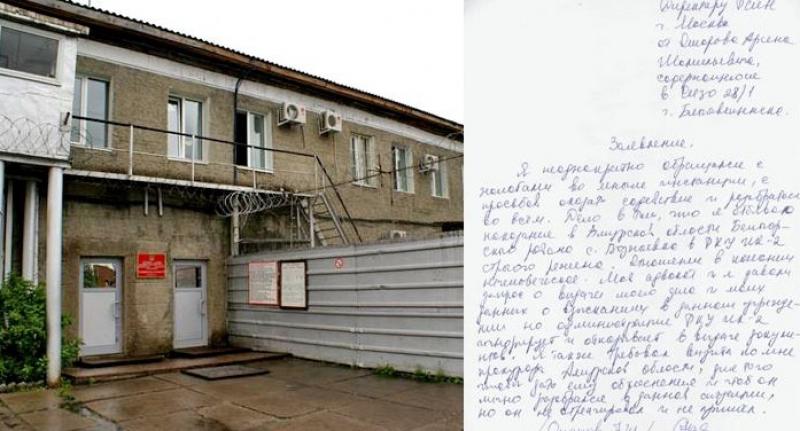 Директору ФСИН
г. Москва
от Омарова Арсена
содержащегося
в Сизо 28/1
г. Благовещенска.
Заявление.
Я неоднократно обращался с
жалобами во многие инстанции, с
просьбой оказать содействие и разобраться
во всём. Дело в том, что я отбываю
наказание в Амурской области
с. Возжаевка в ФКУ ИК-2
строгого режима. Отношение в колонии
нечеловеческое. Мой адвокат и я давали
запрос о выдаче моего дела и моих
данных о взысканиях в данном учрежде-
нии но администрация ФКУ ИК-2
игнорирует и отказывает в выдаче докумен-
тов. Я также требовал визита ко мне
прокурора Амурской области, для того
чтобы дать ему объяснение и чтоб он
лично разобрался в данной ситуации,
но он не отреагировал и не пришел.